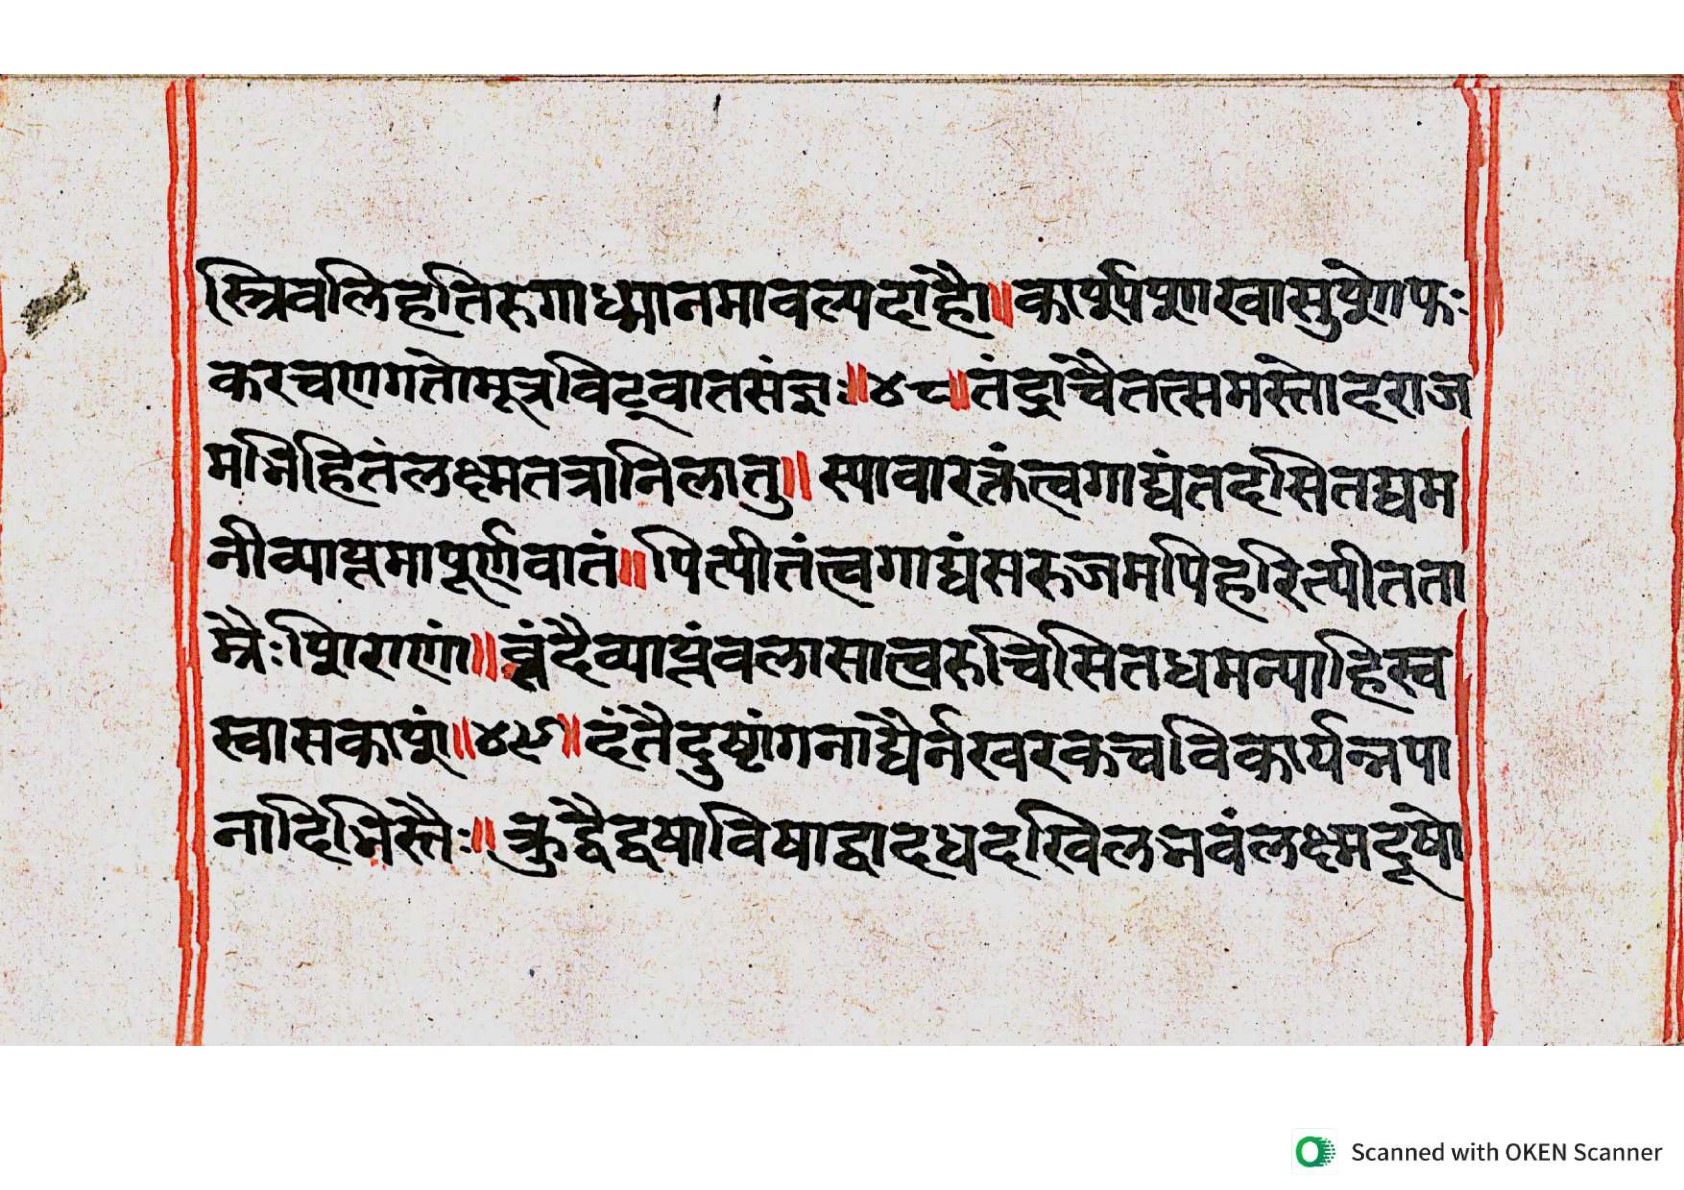 स्त्रिवलिहतिरुगाध्मानमावल्यदाहौ॥कार्पूर्पपूणखासुपूोफः
करचणगतोमूत्रविट्वातसंज्ञः॥४८॥तंद्राचैतत्समस्तोदराज
मभिहितंलक्ष्मतत्रानिलात्तु॥स्यावारक्तंत्वगाद्यंतदसितद्यम
नीव्याप्तमापूर्णवातं॥पित्पीतंत्वगाद्यंसरुजमपिहरित्पीतता
म्रैःपिूाराणां॥न्नंदैव्याप्तंवलासात्वरुचिसितधमन्याहिस्व
स्वासकापूां॥४९॥दंतैदुष्टांगनाद्यैर्नखरकचविकार्यन्नपा
नादिभिस्तैः॥क्रुद्धैद्वषाविषाद्वादधदखिलभवंलक्ष्मदूषो
Scanned with OKEN Scanner